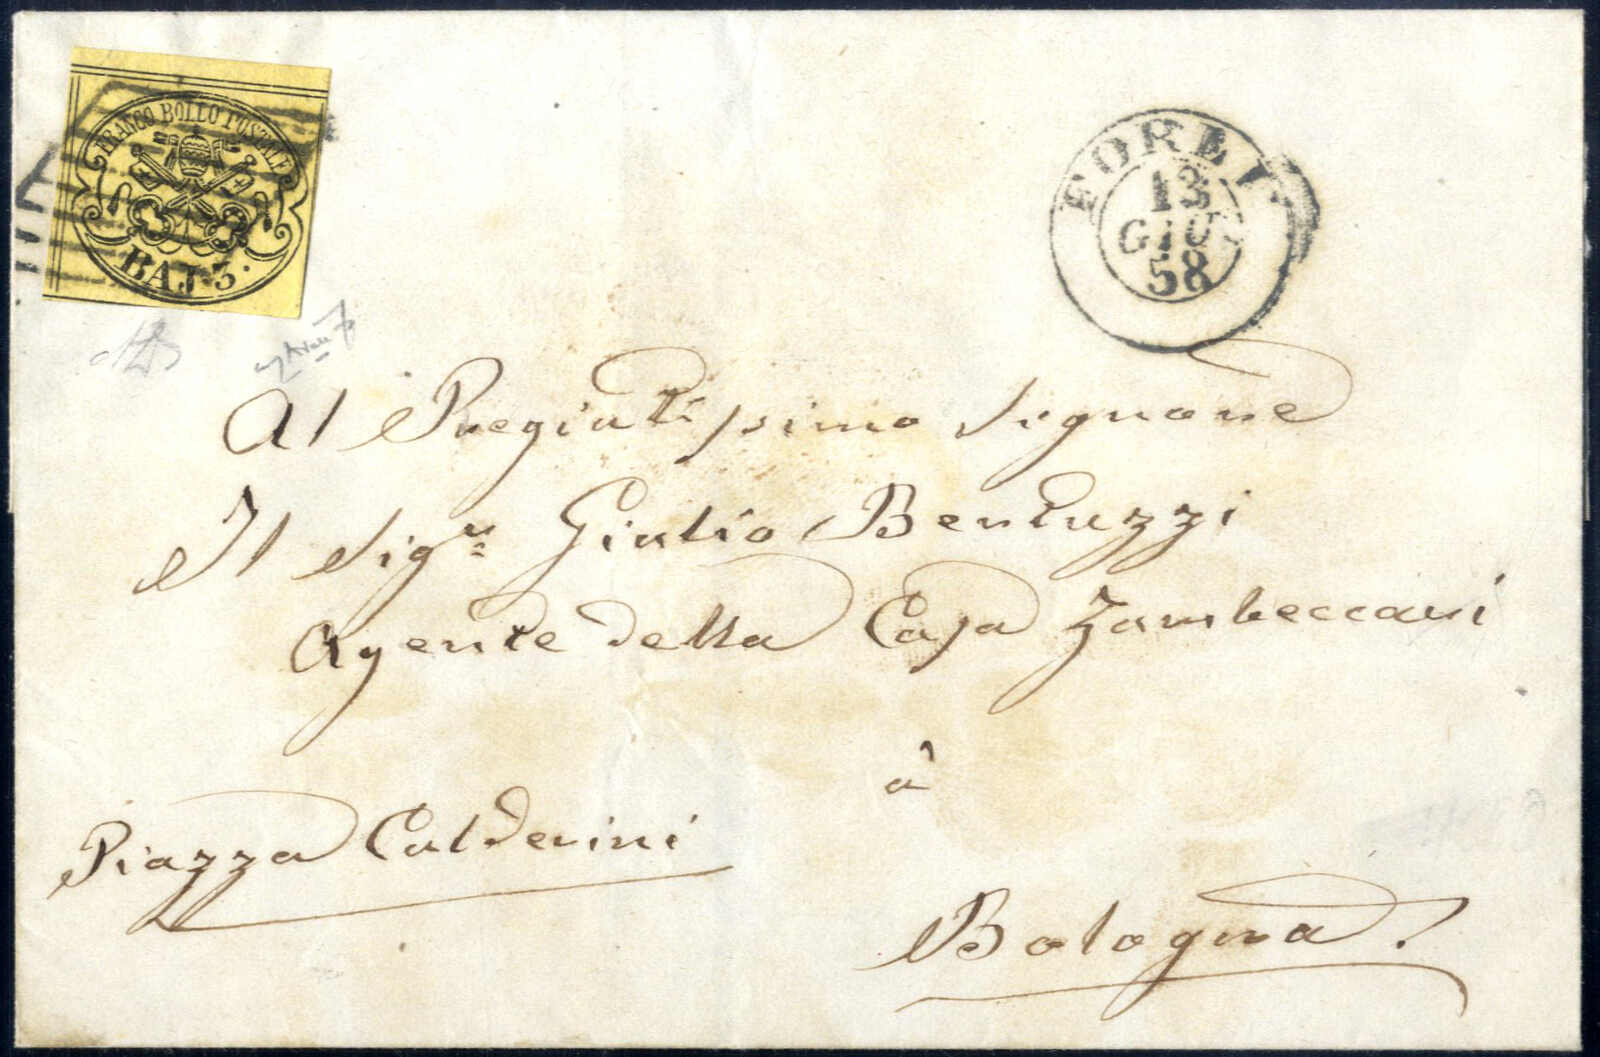 FRANCO BOLLO POSTALE
BAJ. 3.
FORLI
13
GIU
58
Al Pregiatissimo Signore
Il Sigr. Giulio Bentuzzi
Agente della Casa Zambeccari
à
Piazza Calderini
Bologna.